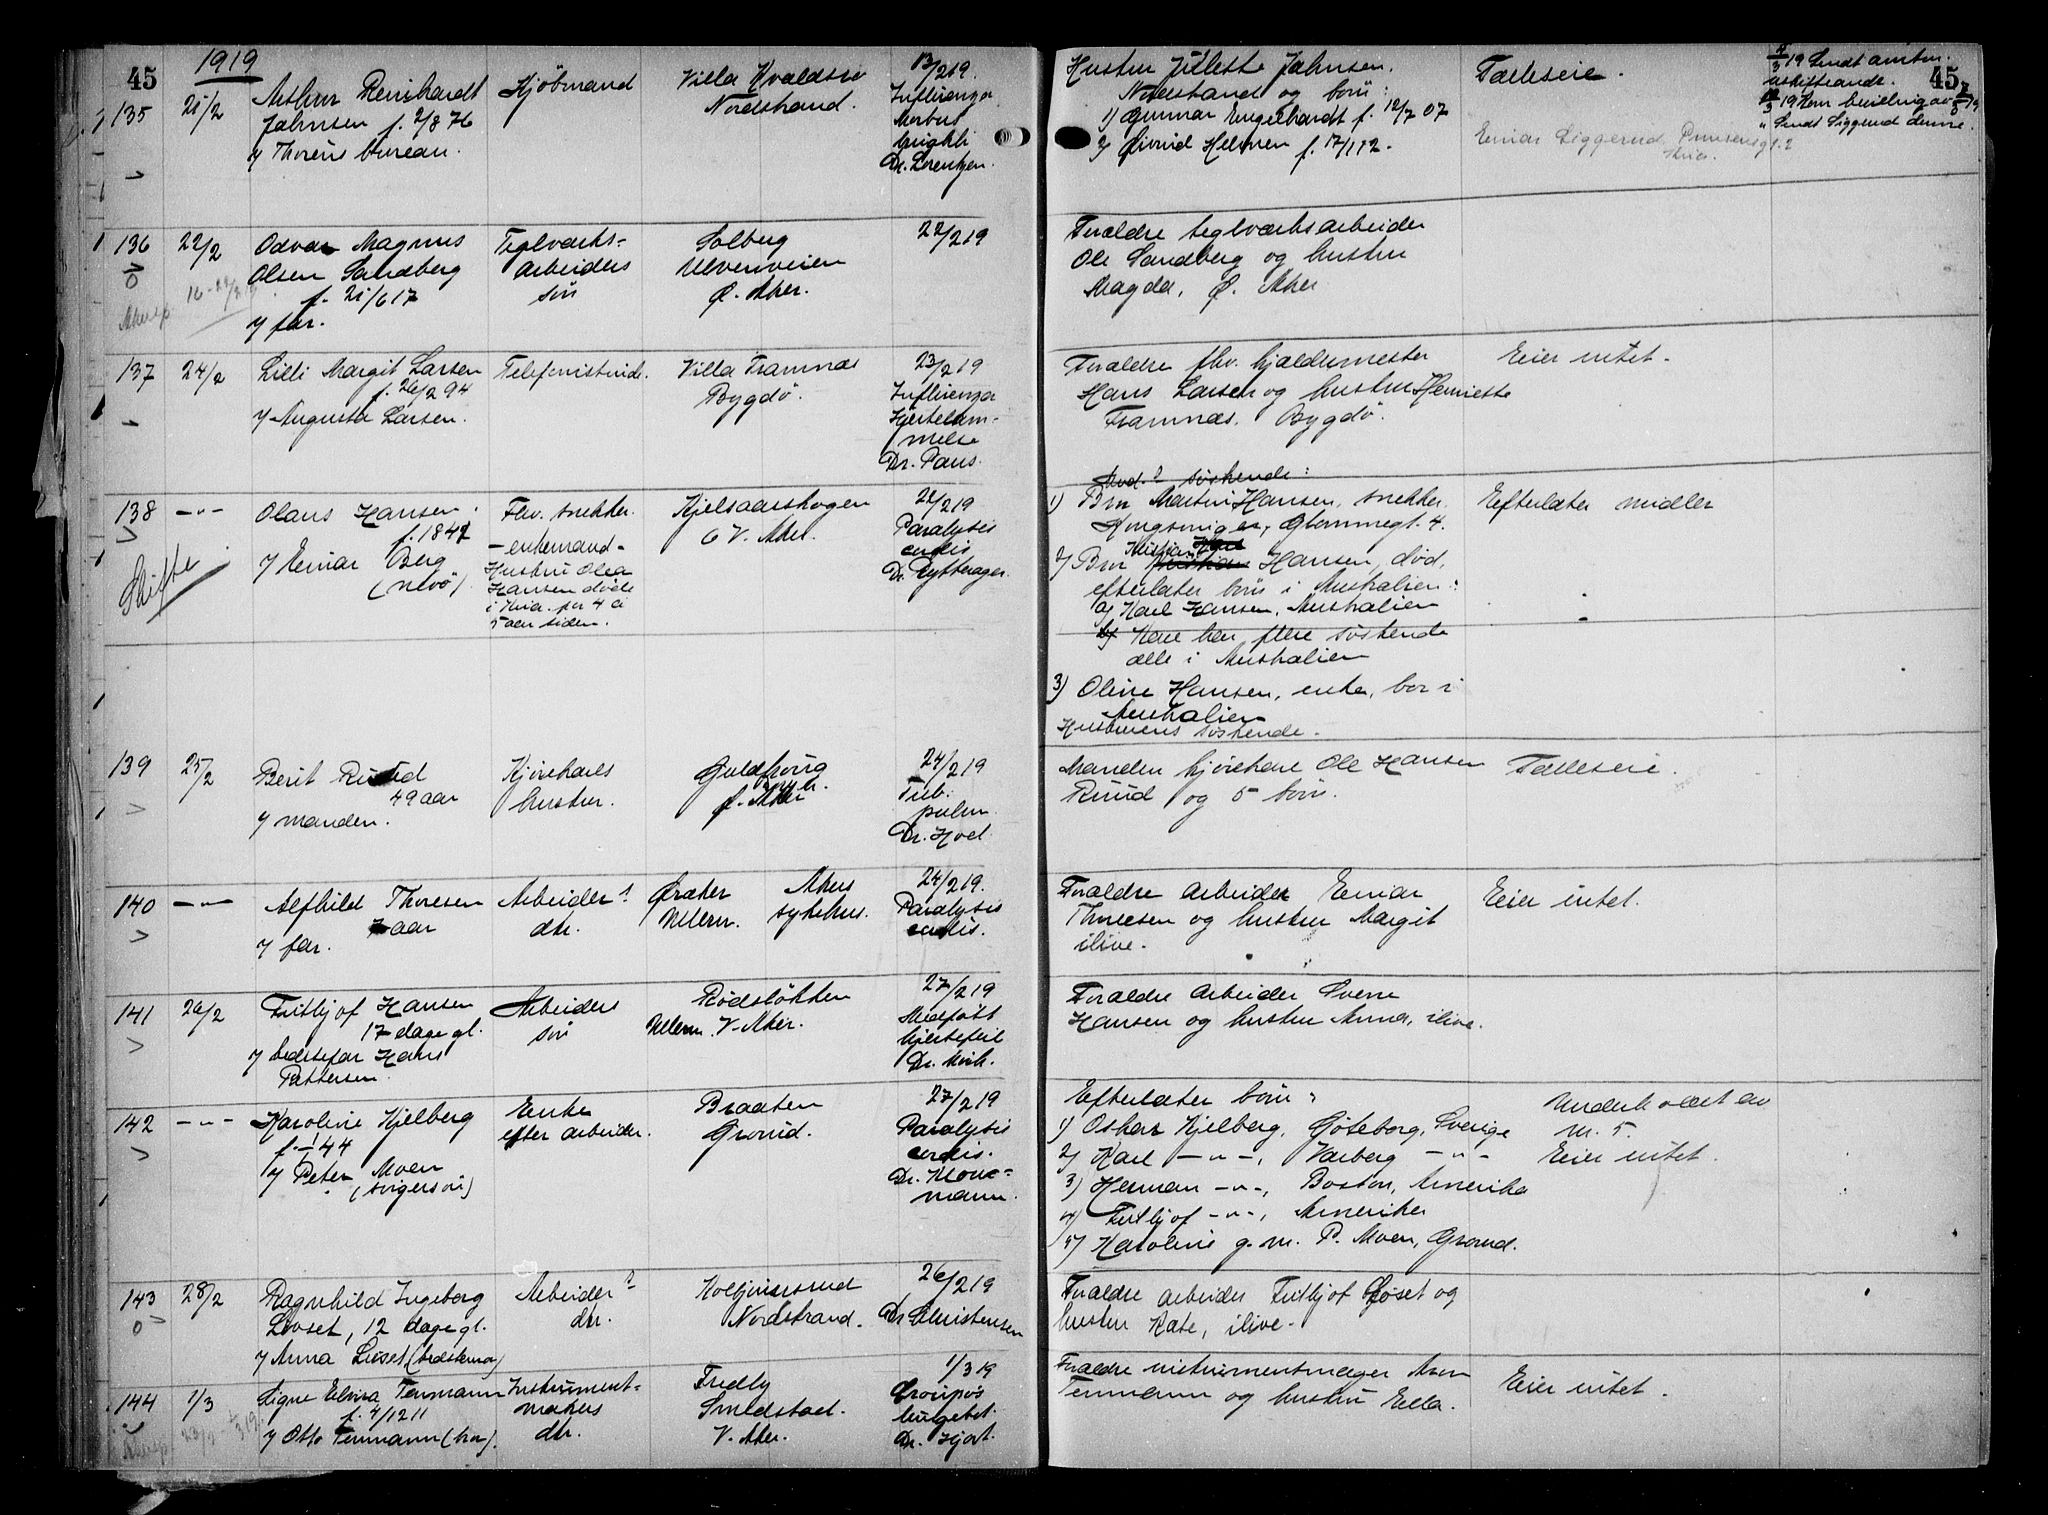 45
1919
135
21/2
Arthur Reinhardt
Jahnsen f. 2/8 76
v/ Thorens bureau.
Kjöbmand
Villa Kvaldsro
Nordstrand.
13/2 19.
Influenza
Morbus
brightii
Dr. Lorentzen.
Hustru Juliette Jahnsen.
Nordstrand og børn:
1) Gunnar Engelhardt f. 12/7 07
2) Øivind Helmer f. 17/1 12.
Fælleseie.
Einar Siggerud
Kria.
45
136
22/2
Odvar Magnus
Olsen Sandberg
f. 21/6 17
v/ far.
Teglverks-
arbeiders
søn
Solberg
Ulvenveien
Ø. Aker.
22/2 19
Forældre teglværksarbeider
Ole Sandberg og hustru
Magda, Ø. Aker
137
24/2
Lilli Margit Larsen
f. 26/2 94
v/ Augusta Larsen.
Telefonistinde.
Villa Framnæs
Bygdö.
23/2 19
Influenza
Hjertelam-
melse
Dr. Paus.
Forældre fhv. kjældermester
Hans Larsen og hustru Henriette
Framnæs. Bygdö.
Eier intet.
138
- " -
Olaus Hansen
f. 1847
v/ Einar Berg
(nevö).
Skifte
Fhv. snekker.
- enkemand -
Hustru Olea
Hansen döde
i Kria. for 4 à
5 aar siden.
Kjelsaasskogen
6 V. Aker.
22/2 19
Paralysis
cordis
Dr. Rytterager.
søskende:
1) Bror Martin Hansen, snekker,
Kongsvinger, Glommegt. 4.
2) Bror Kristian Hansen, död,
efterlater börn i Australien:
a) Karl Hansen, Australien
b) Karl har flere söskende
alle i Australien
3) Oline Hansen, enke, bor i
Australien
Hustruens söskende.
Efterlater midler
139
25/2
Berit Ruud
49 aar
v/ manden.
Kjörekarls
hustru.
24/2 19
Tub.
pulm.
Dr. Hoel
Manden kjörekarl Ole Hansen
Ruud og 5 börn.
Fælleseie.
140
- " -
Alfhild Thoresen
aar
v/ far.
Arbeider's
dtr.
Øraker
Ullern.
Akers
sykehus.
24/2 19.
Paralysis
cordis.
Forældre arbeider Einar
Thoresen og hustru Margit
ilive.
Eier intet.
141
26/2
Fritjof Hansen
17 dage gl.
v/ bedstefar Hans
Pettersen.
Arbeiders
søn
Rödslökken
Ullern V. Aker.
27/2 19
Medfött
hjertefeil
Dr. Mork.
Forældre arbeider Sverre
Hansen og hustru Anna, ilive.
142
- " -
Karoline Kjelberg
f. 1/1 44
v/ Peter Moen
(svigersön)
Enke
efter arbeider.
Braaten
Grorud.
27/2 19
Paralysis
cordis.
Dr. Klouc-
mann.
Efterlater börn:
1) Oskar Kjelberg, Göteborg, Sverige
2) Karl - " -, Varberg - " -
3) Herman - " -, Boston, Amerika
4) Fritjof - " -, Amerika
5) Karoline g. m. P. Moen, Grorud.
Underholdt av
nr. 5.
Eier intet.
143
28/2
Ragnhild Ingeborg
Lövset, 12 dage gl.
v/ Anna Lövset (bedstemor)
Arbeider's
dtr.
Holtjernsrud
Nordstrand.
26/2 19
Dr. Christensen
Forældre arbeider Fritjof Löset og
hustru Kate, ilive.
144
1/3
Signe Elvira Tenmann
f. 4/12 11
v/ Otto Tenmann (bror).
Instrument-
makers
dtr.
Fredly
Smedstad.
V. Aker.
1/3 19
Croupøs
lungebet.
Dr. Hjort.
Forældre instrumentmager
Tenmann og hustru Ella.
Eier intet.